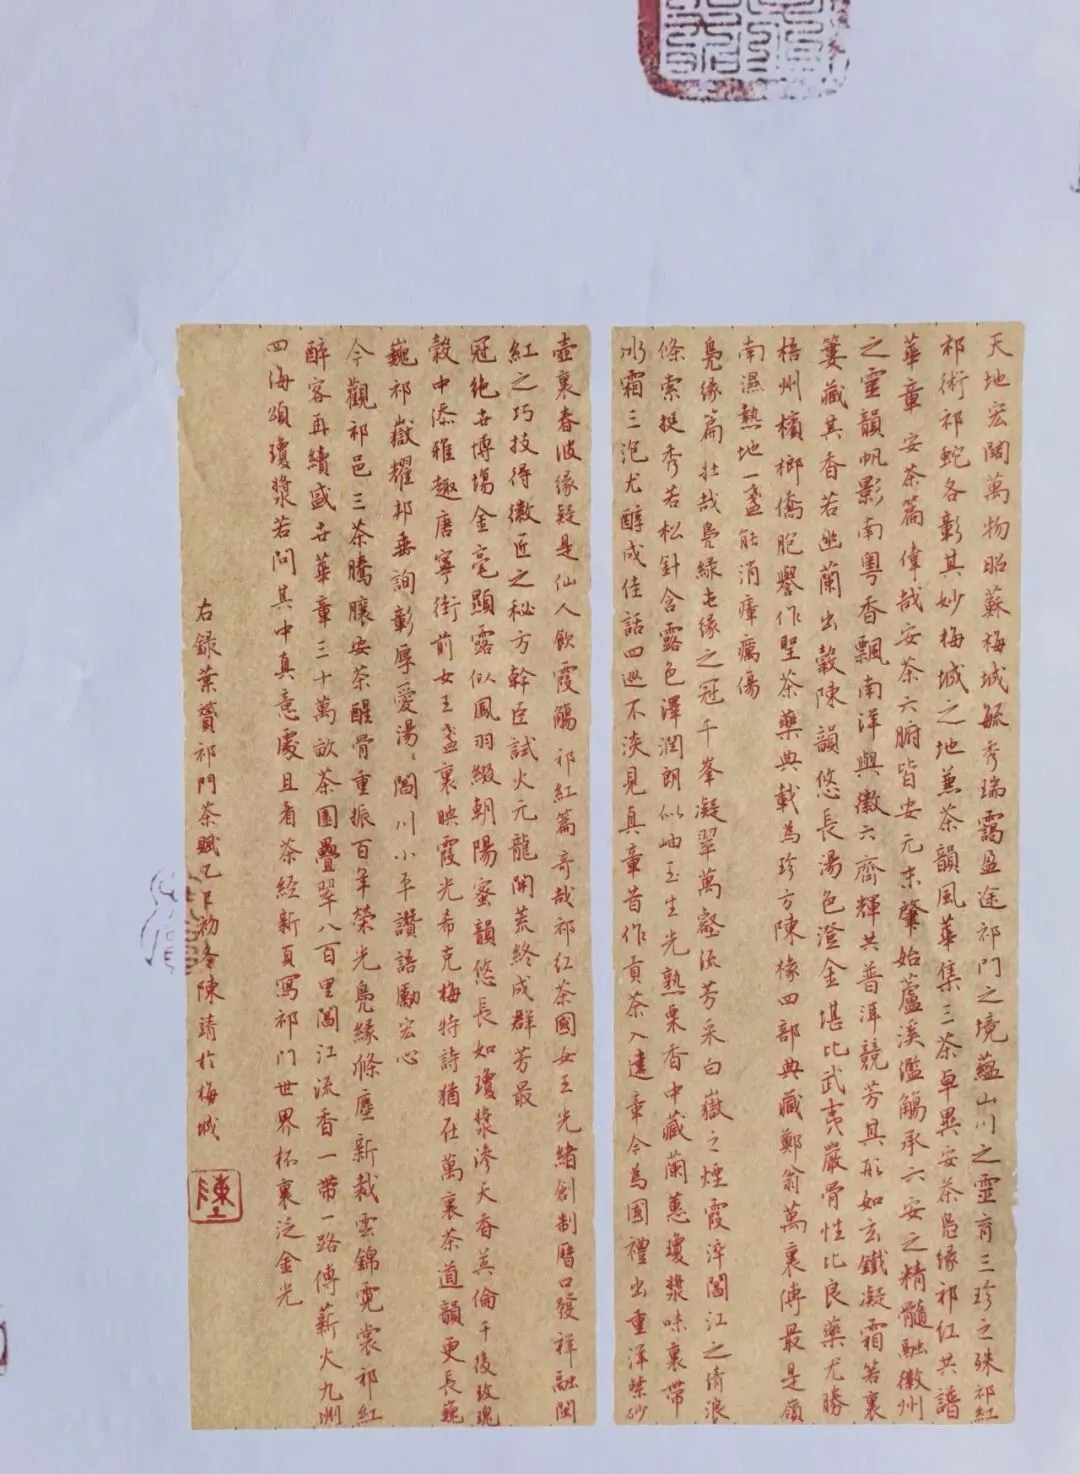 天地宏闊萬物昭蘇梅城毓秀瑞靄盈途祁門之境蘊山川之靈育三珍之殊祁紅
祁術祁蛇各彰其妙梅城之地兼茶韻風華集三茶卓異安茶鳧緣祁紅共譜
華章 安茶篇 偉哉安茶六腑皆安元末肇始蘆溪濫觴承六安之精髓融徽州
之靈韻帆影南粵香飄南洋與徽六齊輝共普洱競芳其形如玄鐵凝霜箬裏
簍藏其香若幽蘭出穀陳韻悠長湯色澄金堪比武夷嚴骨性比良藥尤勝
梧州檳榔僑胞譽作聖茶藥典載為珍方陳椽四部典藏鄭翁萬裏傳最是嶺
南濕熱地一盞能消瘴癘傷
鳧緣篇 壯哉鳧緑屯緣之冠千峯凝翠萬壑流芳采白嶽之煙霞淬閶江之清浪
條索挺秀若松針含露色澤潤朗似岫玉生光熟栗香中藏蘭蕙瓊漿味裏帶
冰霜三泡尤醇成佳話四巡不淡見真章昔作貢茶入建章今為國禮出重洋紫砂
壺裏春波緣疑是仙人飲霞觴 祁紅篇 奇哉祁紅茶國女王光緒創制曆口發祥融閩
紅之巧技得徽匠之秘方幹臣試火元龍開荒終成群芳最
冠絶古博場金毫顯露似鳳羽綴朝陽蜜韻悠長如瓊漿滲天香英倫午後玫瑰
穀中添雅趣唐寧街前女王盞裏映霞光希克梅特詩猶在萬裏茶道韻更長巍
巍祁嶽耀邦垂詢彰厚愛湯、閶川小平讚語勵宏心
今觀祁邑三茶騰驤安茶醒骨重振百年榮光鳧緣滌塵新裁雲錦霓裳祁紅
醉客再續盛世華章三十萬畝茶園疊翠八百里閶江流香一帶一路傳薪火九洲
四海頌瓊漿若問其中真意處且看茶經新頁寫祁门世界杯裏泛金光
右錄葉贊祁門茶賦乙巳初冬陳靖於梅城